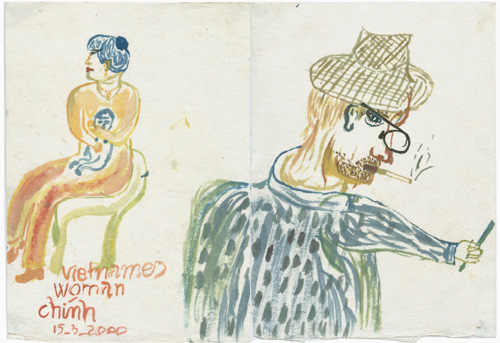 vietnames
woman
chính
15_3_2000